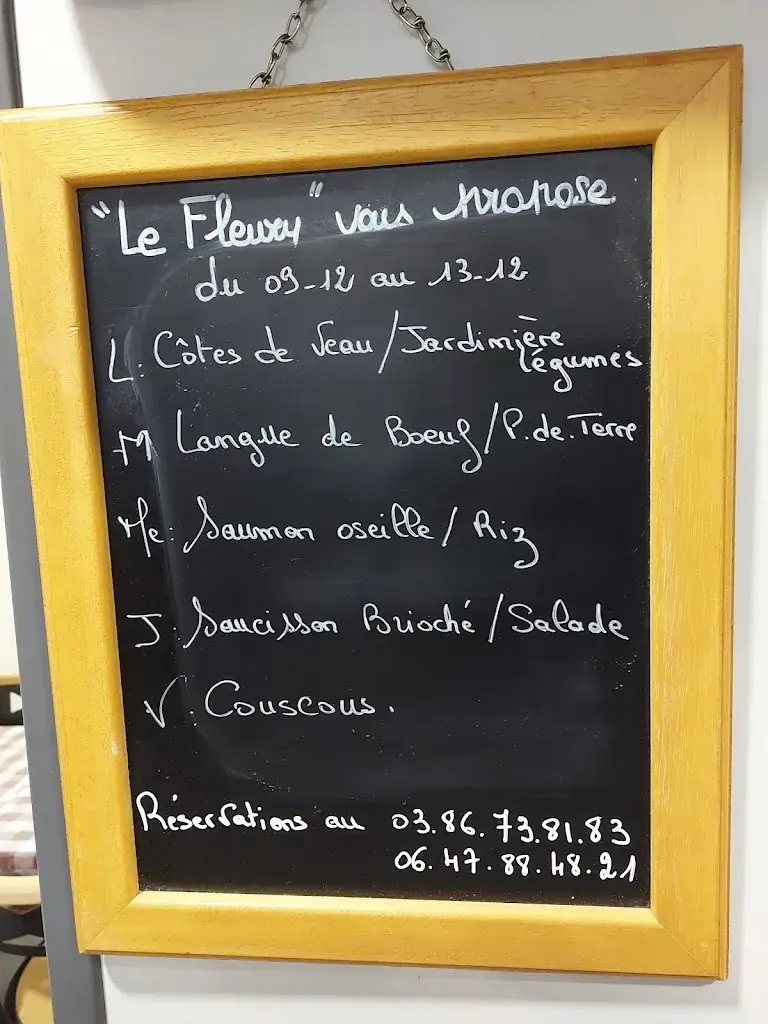 "Le Fleury" vous propose
du 09-12 au 13-12
L: Côtes de Veau/Jardinière
légumes
M Langue de Boeuf/P.de.Terre
Me: Saumon oseille/Riz
J: Saucisson Brioché/Salade
V: Couscous.
Réservations au 03.86.73.81.83
06.47.88.48.21